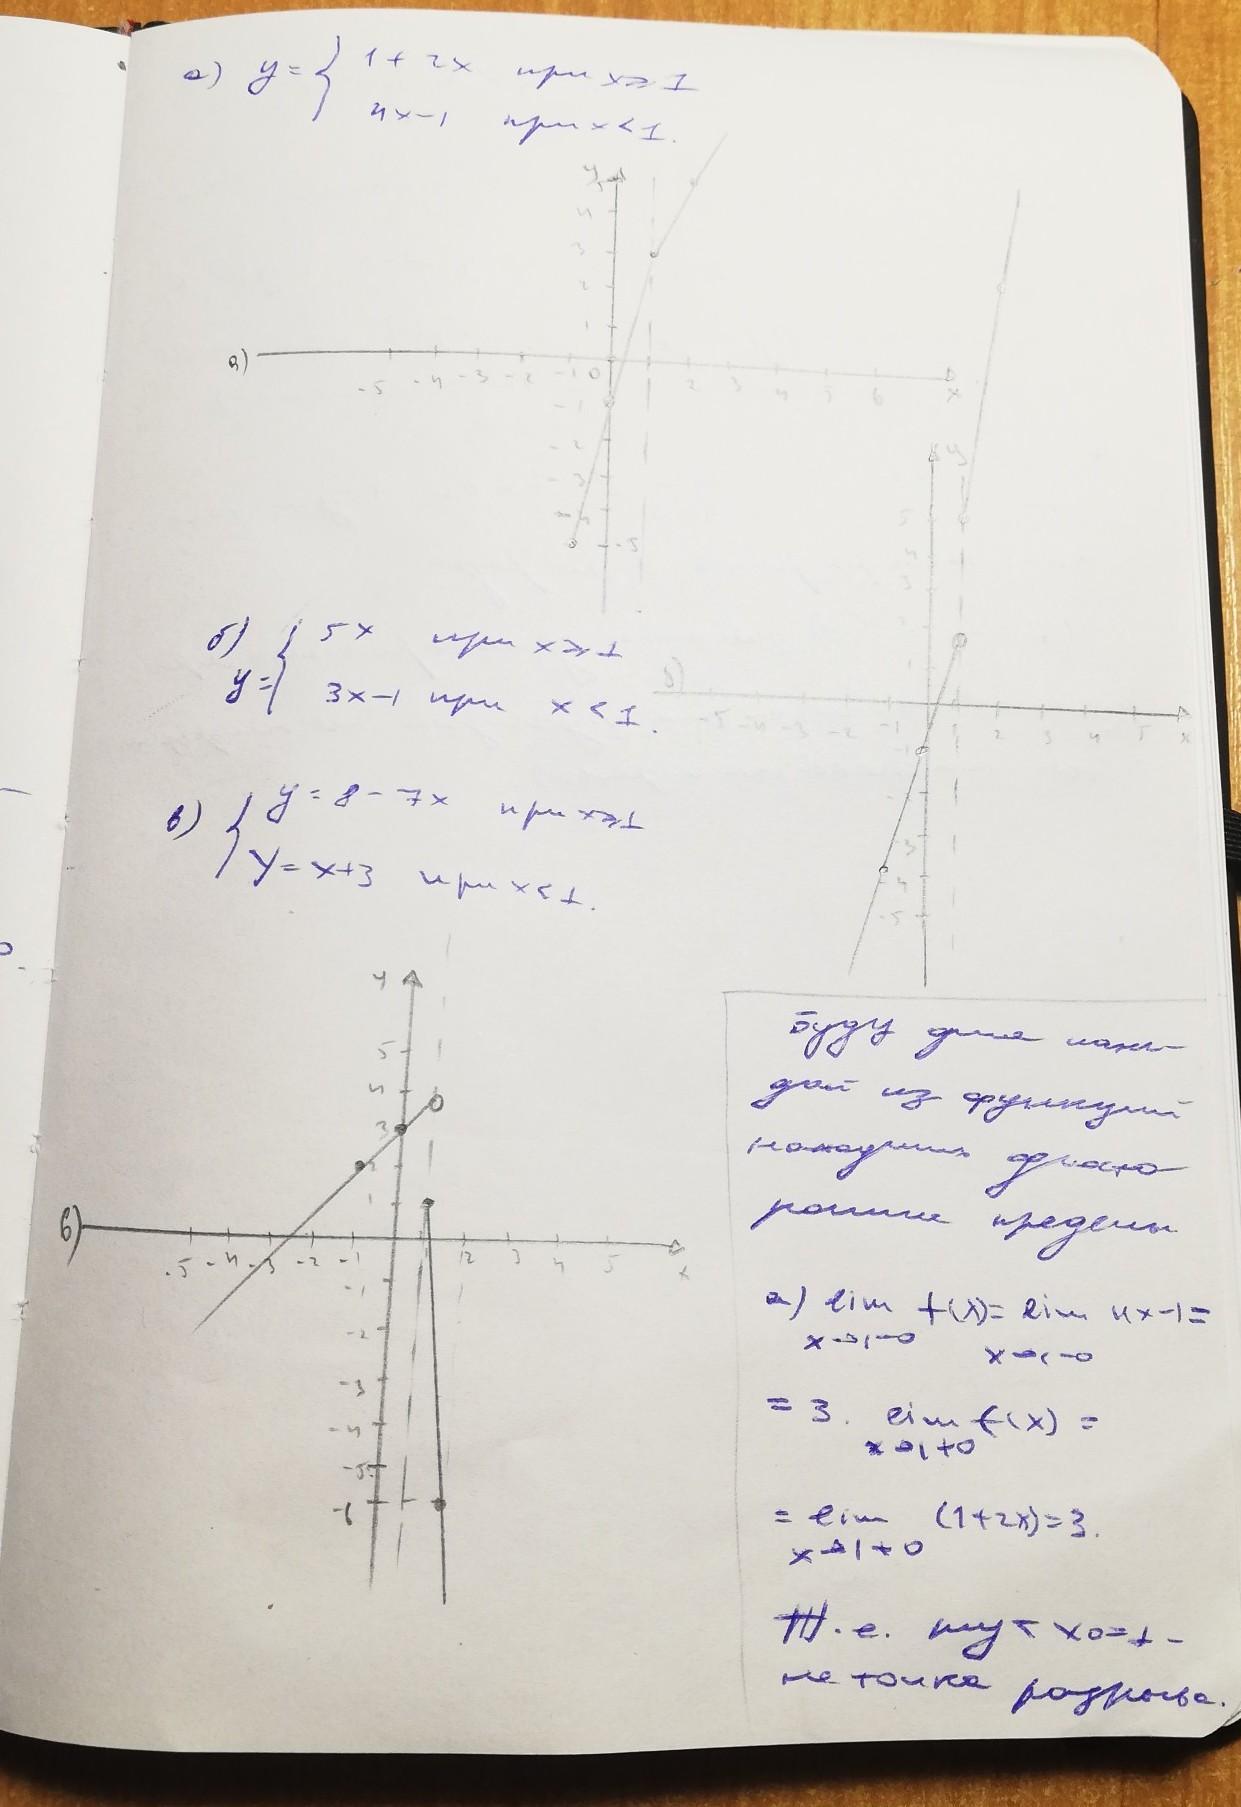 а) y = { 1 + 2x при x ≥ 1
4x-1 при x < 1.
y
5
3
2
1
а)
-5 -4 -3 -2 -1 0 2 3 4 5 6 x
-1
-2
-3
-5
б) y = { 5x при x ≥ 1
3x-1 при x < 1.
y
5
4
3
1
б)
-5 -4 -3 -2 -1 1 2 3 4 5 x
-1
-3
-4
-5
в) { y = 8 - 7x при x ≥ 1
y = x+3 при x < 1.
y
5
4
3
2
1
в)
-5 -4 -3 -2 -1 2 3 4 5 x
-1
-2
-3
-4
-5
-6
Буду для каж-
дой из функций
находить односто
ронние пределы
а) lim f(x) = lim 4x-1 =
x→1-0 x→1-0
= 3. lim f(x) =
x→1+0
= lim (1+2x) = 3.
x→1+0
Т.е. тут x0=1 -
не точка разрыва.